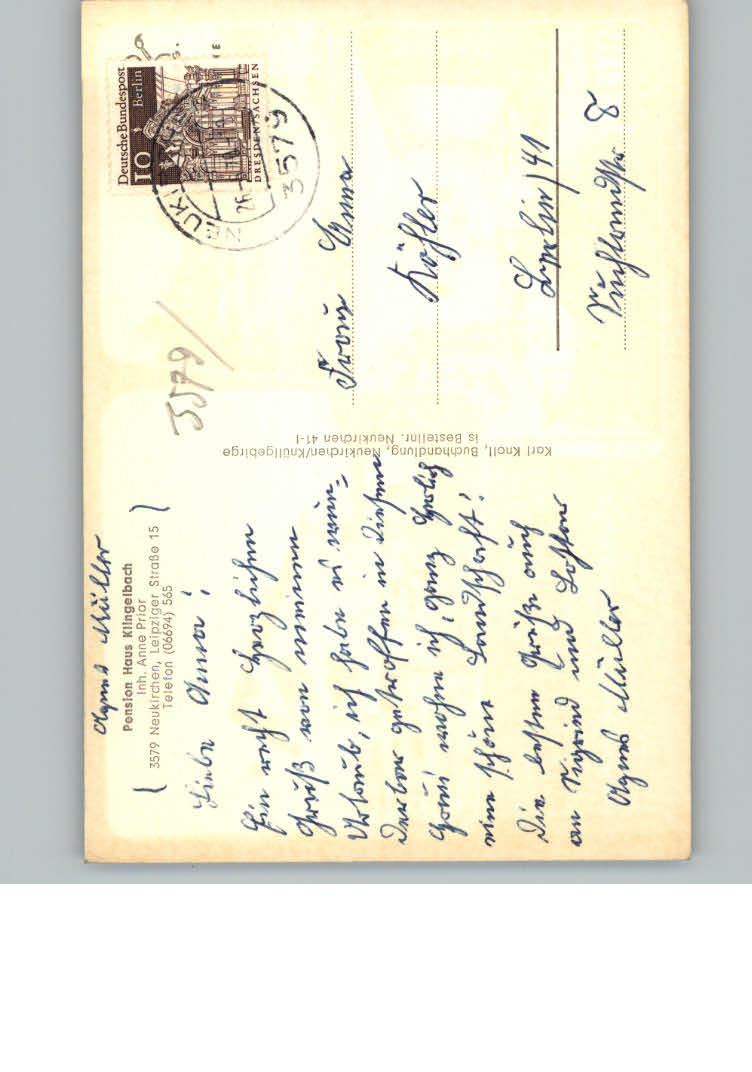 Agnes Müller
Pension Haus Klingelbach
Inh. Anne Prior
3579 Neukirchen, Leipziger Straße 15
Telefon (06694) 565
Liebe Anna!
Ein recht herzlichen
Gruß von meinem
Urlaub, ich habe es wun=
derbar getroffen in diesem
Haus wohne ich, ganz herrlich
eine schöne Landschaft!
Die besten Grüße auch
an Sigried und Lothar
Agnes Müller
Karl Knoll, Buchhandlung, Neukirchen/Knüllgebirge
is Bestellnr. Neukirchen 41-I
3579
Deutsche Bundespost
Berlin
10
DRESDEN/SACHSEN
NEUKI
26
3579
Frau Anna
Köhler
Berlin 41
8